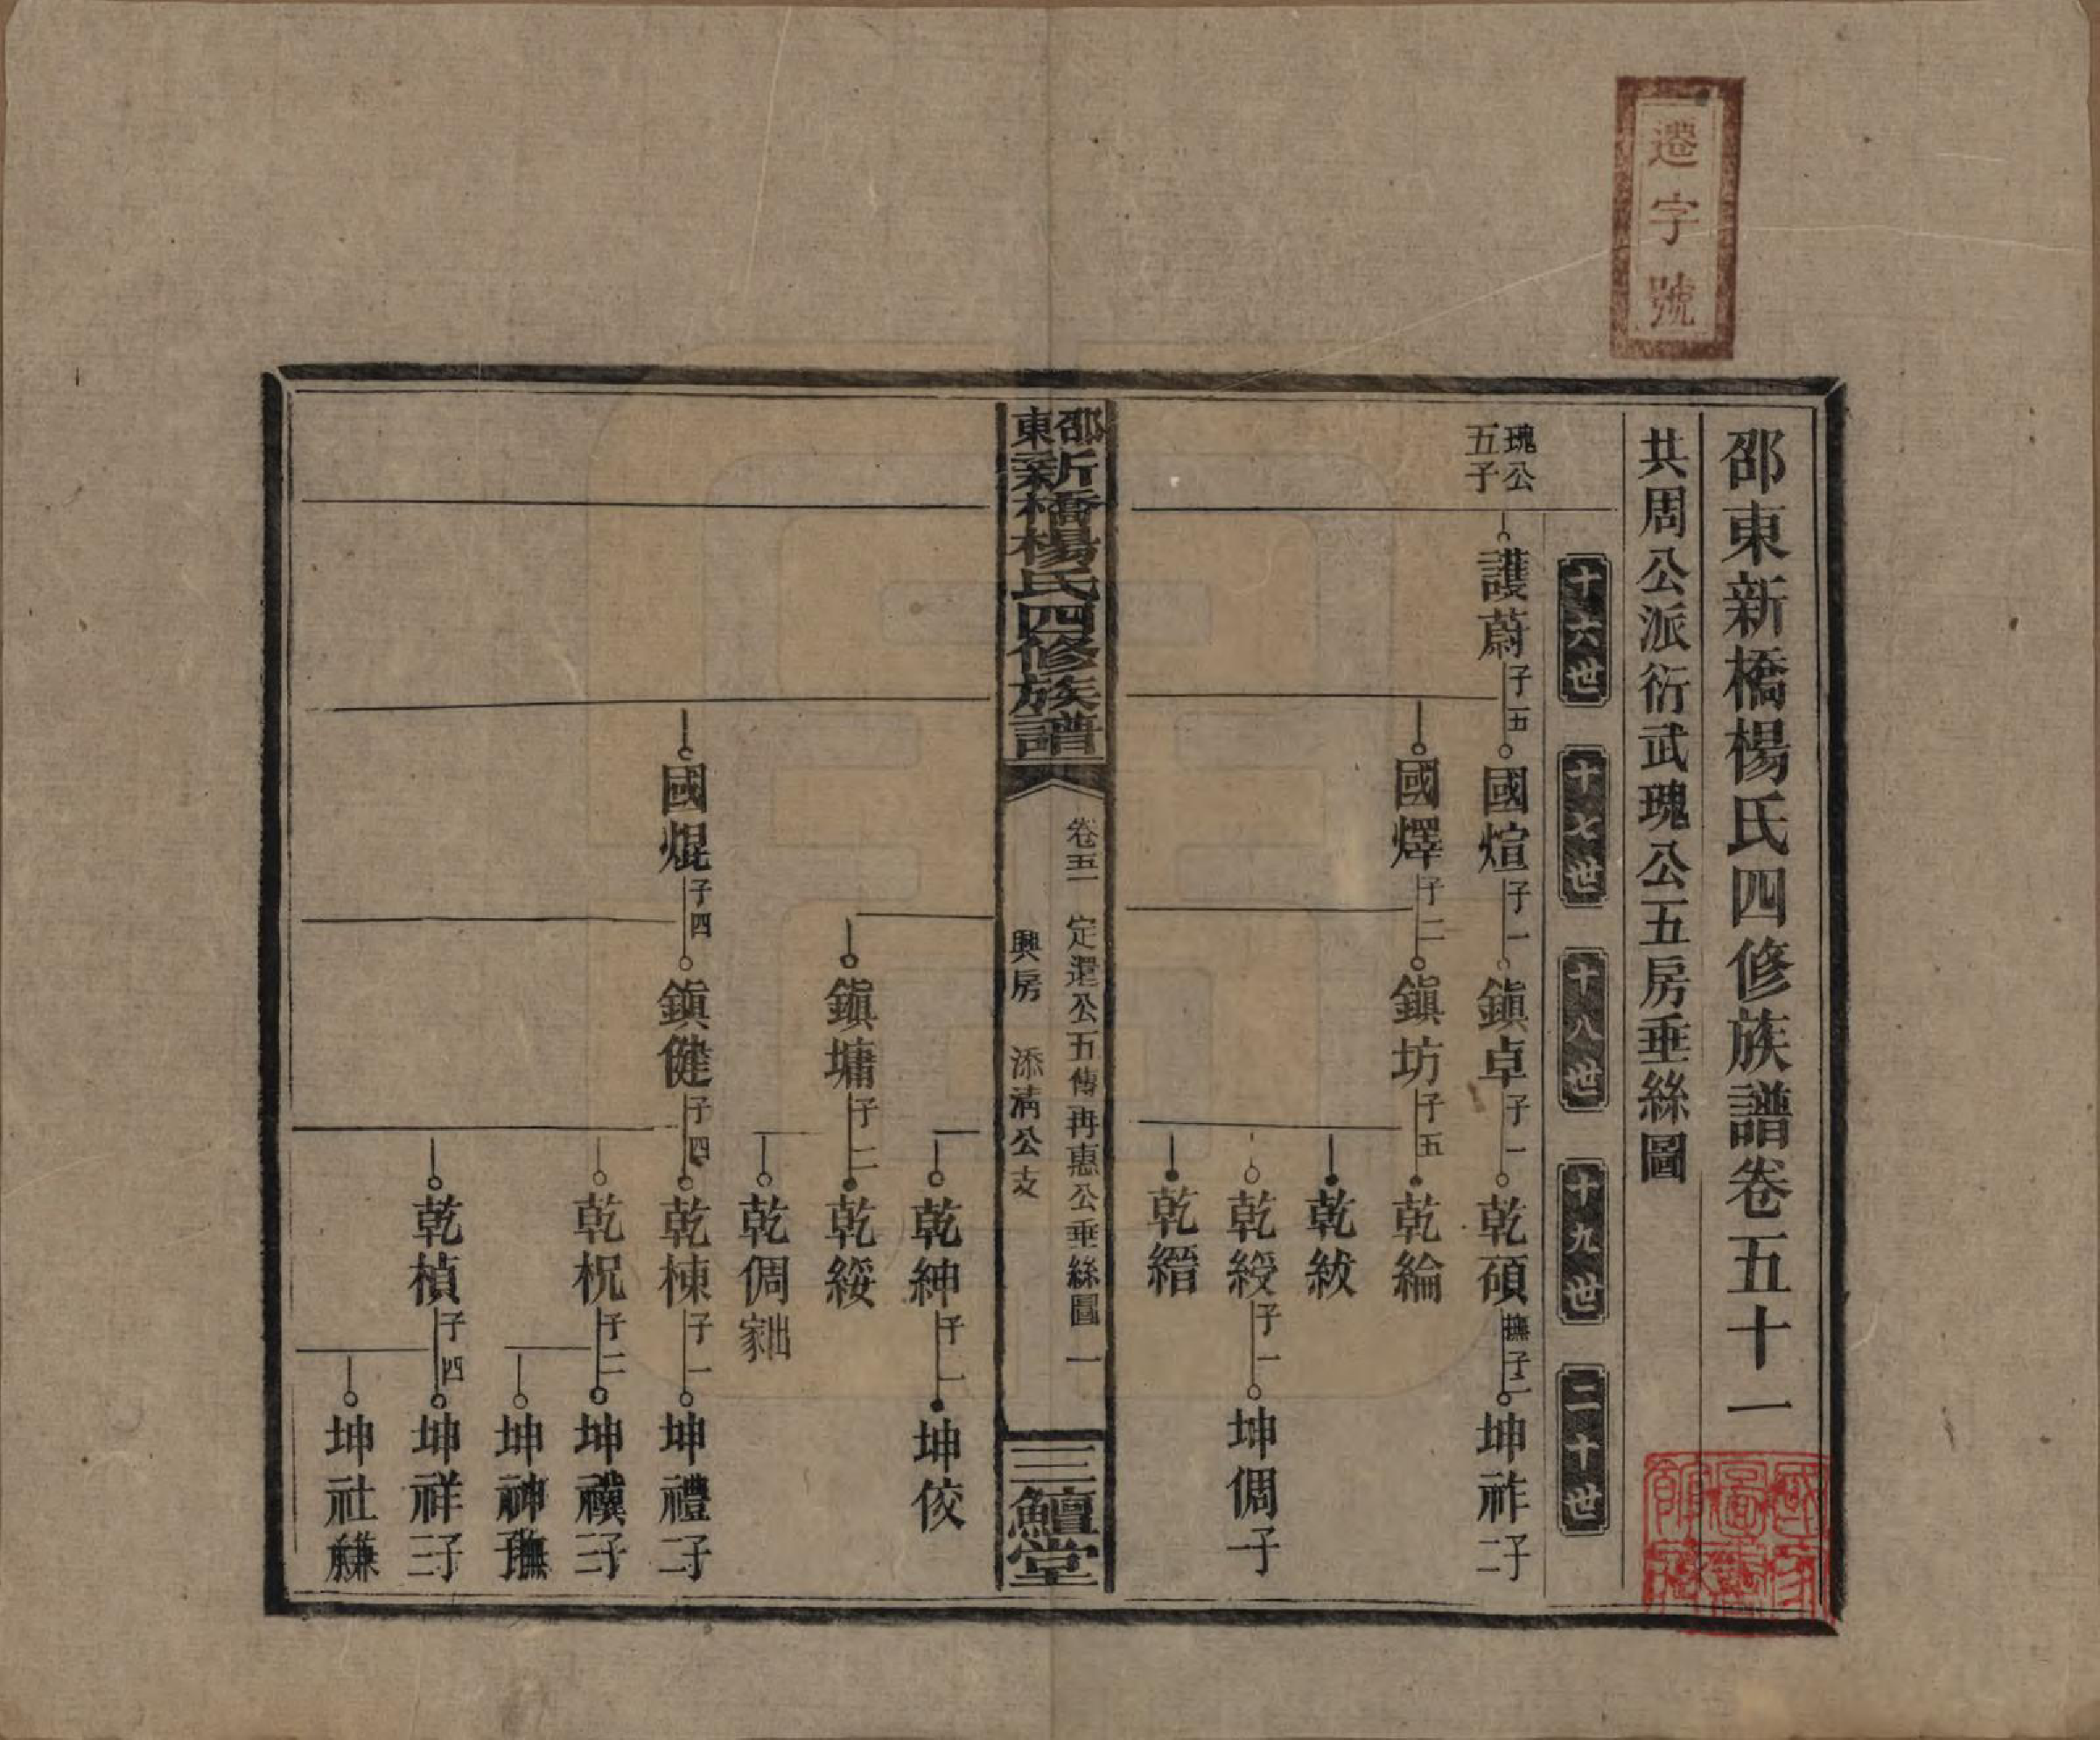 遷字號
邵東新橋楊氏四修族譜卷五十一
共周公派衍武瑰公五房垂絲圖
十六世
十七世
十八世
十九世
二十世
瑰公五子
護蔚 子五
國煊 子一
鎮卓 子一
乾碩 撫子二
坤祚 二子
國燡 子二
鎮坊 子五
乾綸
乾紱
乾綬 子一
坤倜 子一
乾縉
邵東新橋楊氏四修族譜
卷五一 定還公五傳再惠公垂絲圖 一
興房 添溝公支
三鱣堂
乾紳 子一
坤佼
鎮墉 子二
乾綏
乾倜 出家
國焜 子四
鎮健 子四
乾棟 子一
坤禮 二子
乾柷 子二
坤禩 三子
坤神
乾楨 子四
坤祥 三子
坤社